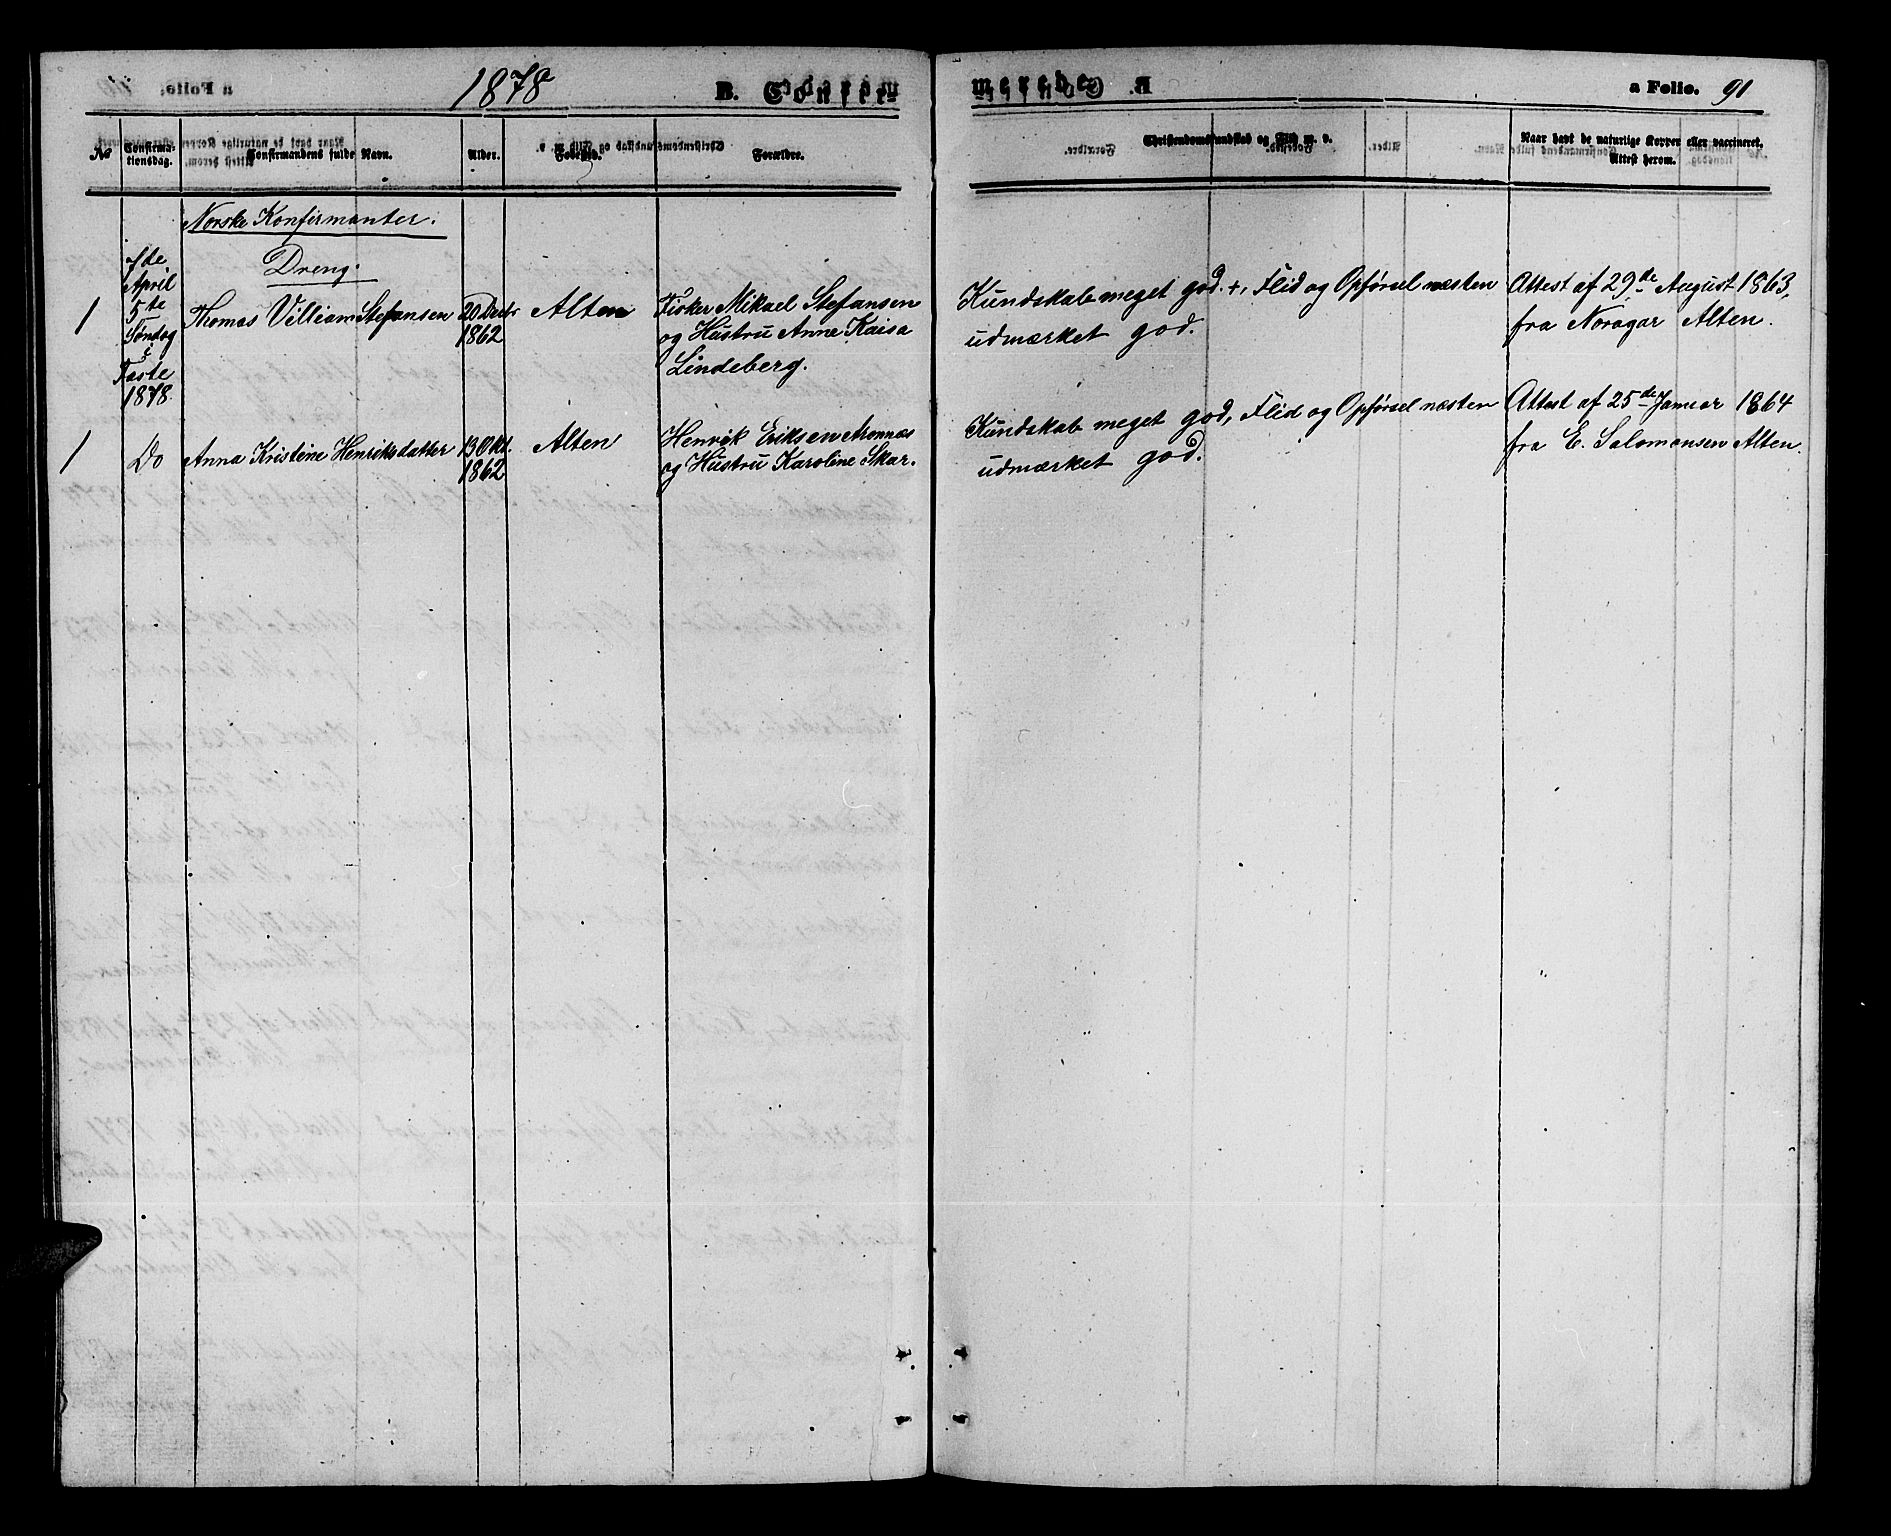 1878 B. Confir-
merede. a Folio. 91
No Confirma-
tionsdag. Confirmandens fulde Navn. Alder. Fødested. Forældre. Christendomskundskab og Flid m. v. Naar havt de naturlige Kopper eller vaccineret.
Attest herom.
Norske Konfirmanter.
Dreng.
1
7de
April
5te
Søndag
i
Faste
1878.
Thomas Villiam Stefansen
20 Decbr
1862
Alten
Fisker Mikael Stefansen
og Hustru Anne Kaisa
Lindeberg.
Kundskab meget god. +, Flid og Opførsel næsten
udmærket god.
Attest af 29de August 1863,
fra Noragar Alten.
1
Do
Anna Kristine Henriksdatter
13 Okt.
1862
Alten
Henrik Eriksen Aronnæs
og Hustru Karoline Skar.
Kundskab meget god, Flid og Opførsel næsten
udmærket god.
Attest af 25de Januar 1864
fra E. Salomonsen Alten.